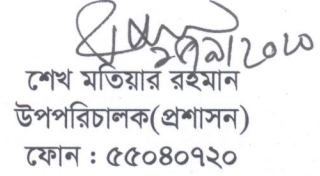 শেখ মতিয়ার রহমান
উপপরিচালক(প্রশাসন)
ফোন : ৫৫০৪০৭২০